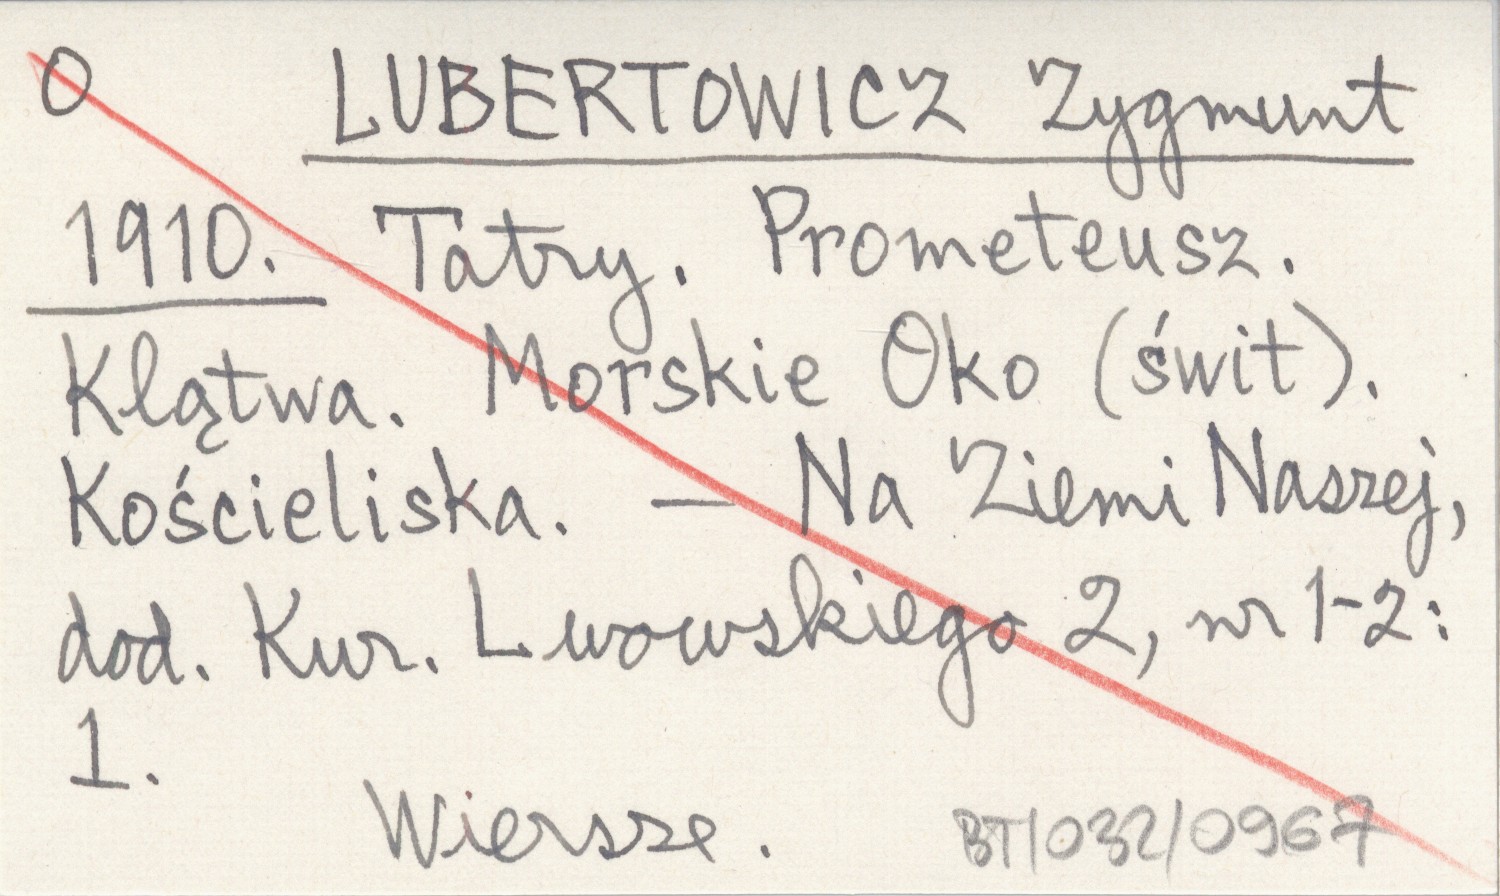 O LUBERTOWICZ Zygmunt
1910. Tatry. Prometeusz.
Klątwa. Morskie Oko (świt).
Kościeliska. — Na Ziemi Naszej,
dod. Kur. Lwowskiego 2, nr 1-2:
1.
Wiersze. BT/032/0967